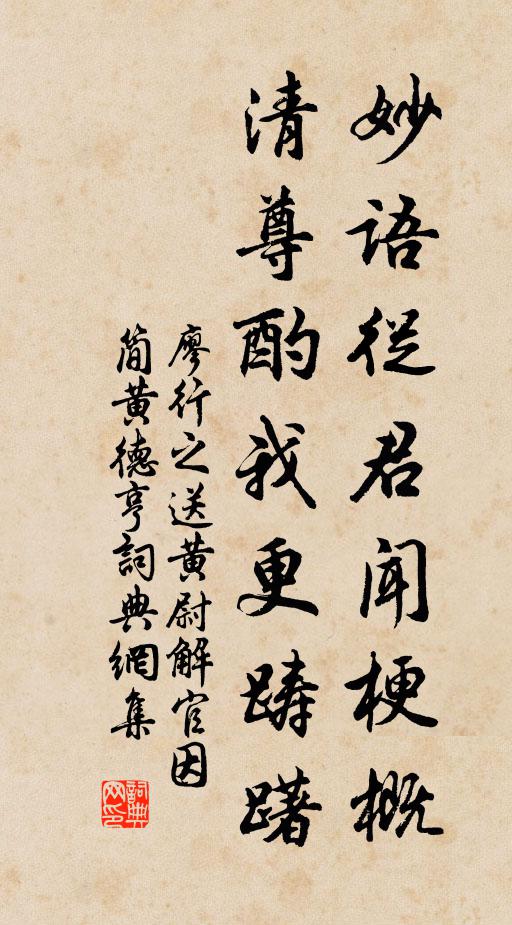 妙語從君聞梗概
清尊酌我更踌躇
廖行之送黄尉解官因
简黄德亨詞典網集
詞典
网印